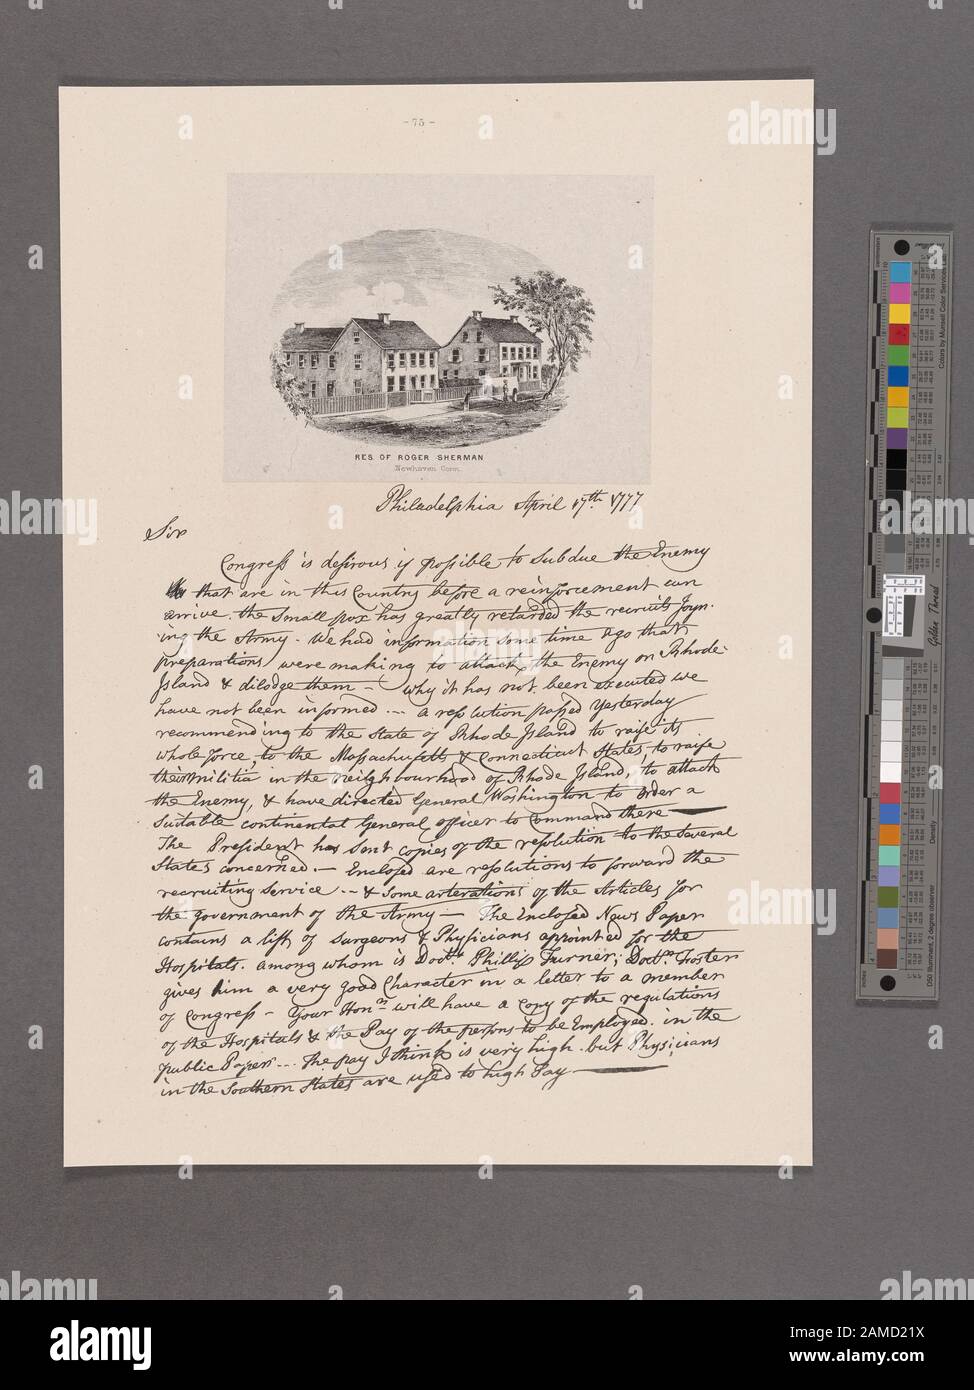 - 75 -
RES. OF ROGER SHERMAN
Newhaven Conn.
Philadelphia April 17th 1777
Sir
Congress is desirous if possible to Subdue the Enemy
that are in this Country before a reinforcement can
arrive. the Small pox has greatly retarded the recruits Joyn-
ing the Army. We had information some time ago that
preparations were making to attack the Enemy on Rhode-
Island & dislodge them - why it has not been executed we
have not been informed. -- a resolution passed Yesterday
recommending to the State of Rhode Island to raise its
whole force, to the Massachusetts & Connecticut States to raise
their militia in the neighbourhood of Rhode Island, to attack
the Enemy, & have directed General Washington to order a
Suitable continental General officer to Command there -
The President has Sent copies of the resolution to the Several
States concerned. - Enclosed are resolutions to forward the
recruiting Service. - & Some alterations of the Articles for
the government of the Army - The Enclosed News Paper
contains a list of Surgeons & Physicians appointed for the
Hospitals. among whom is Doctr. Phillip Turner; Doctr. Foster
gives him a very good Character in a letter to a member
of Congress - Your Honr. will have a copy of the regulations
of the Hospitals & the Pay of the persons to be Employed. in the
public Paper -- The pay I think is very high. but Physicians
in the Southern States are used to high Pay -
Golden Thread
Colors by Munsell Color Services
D50 Illuminant, 2 degree observer
Density
centimeters
inches
alamy
a
alamy
Image ID: 2AMD21X
www.alamy.com